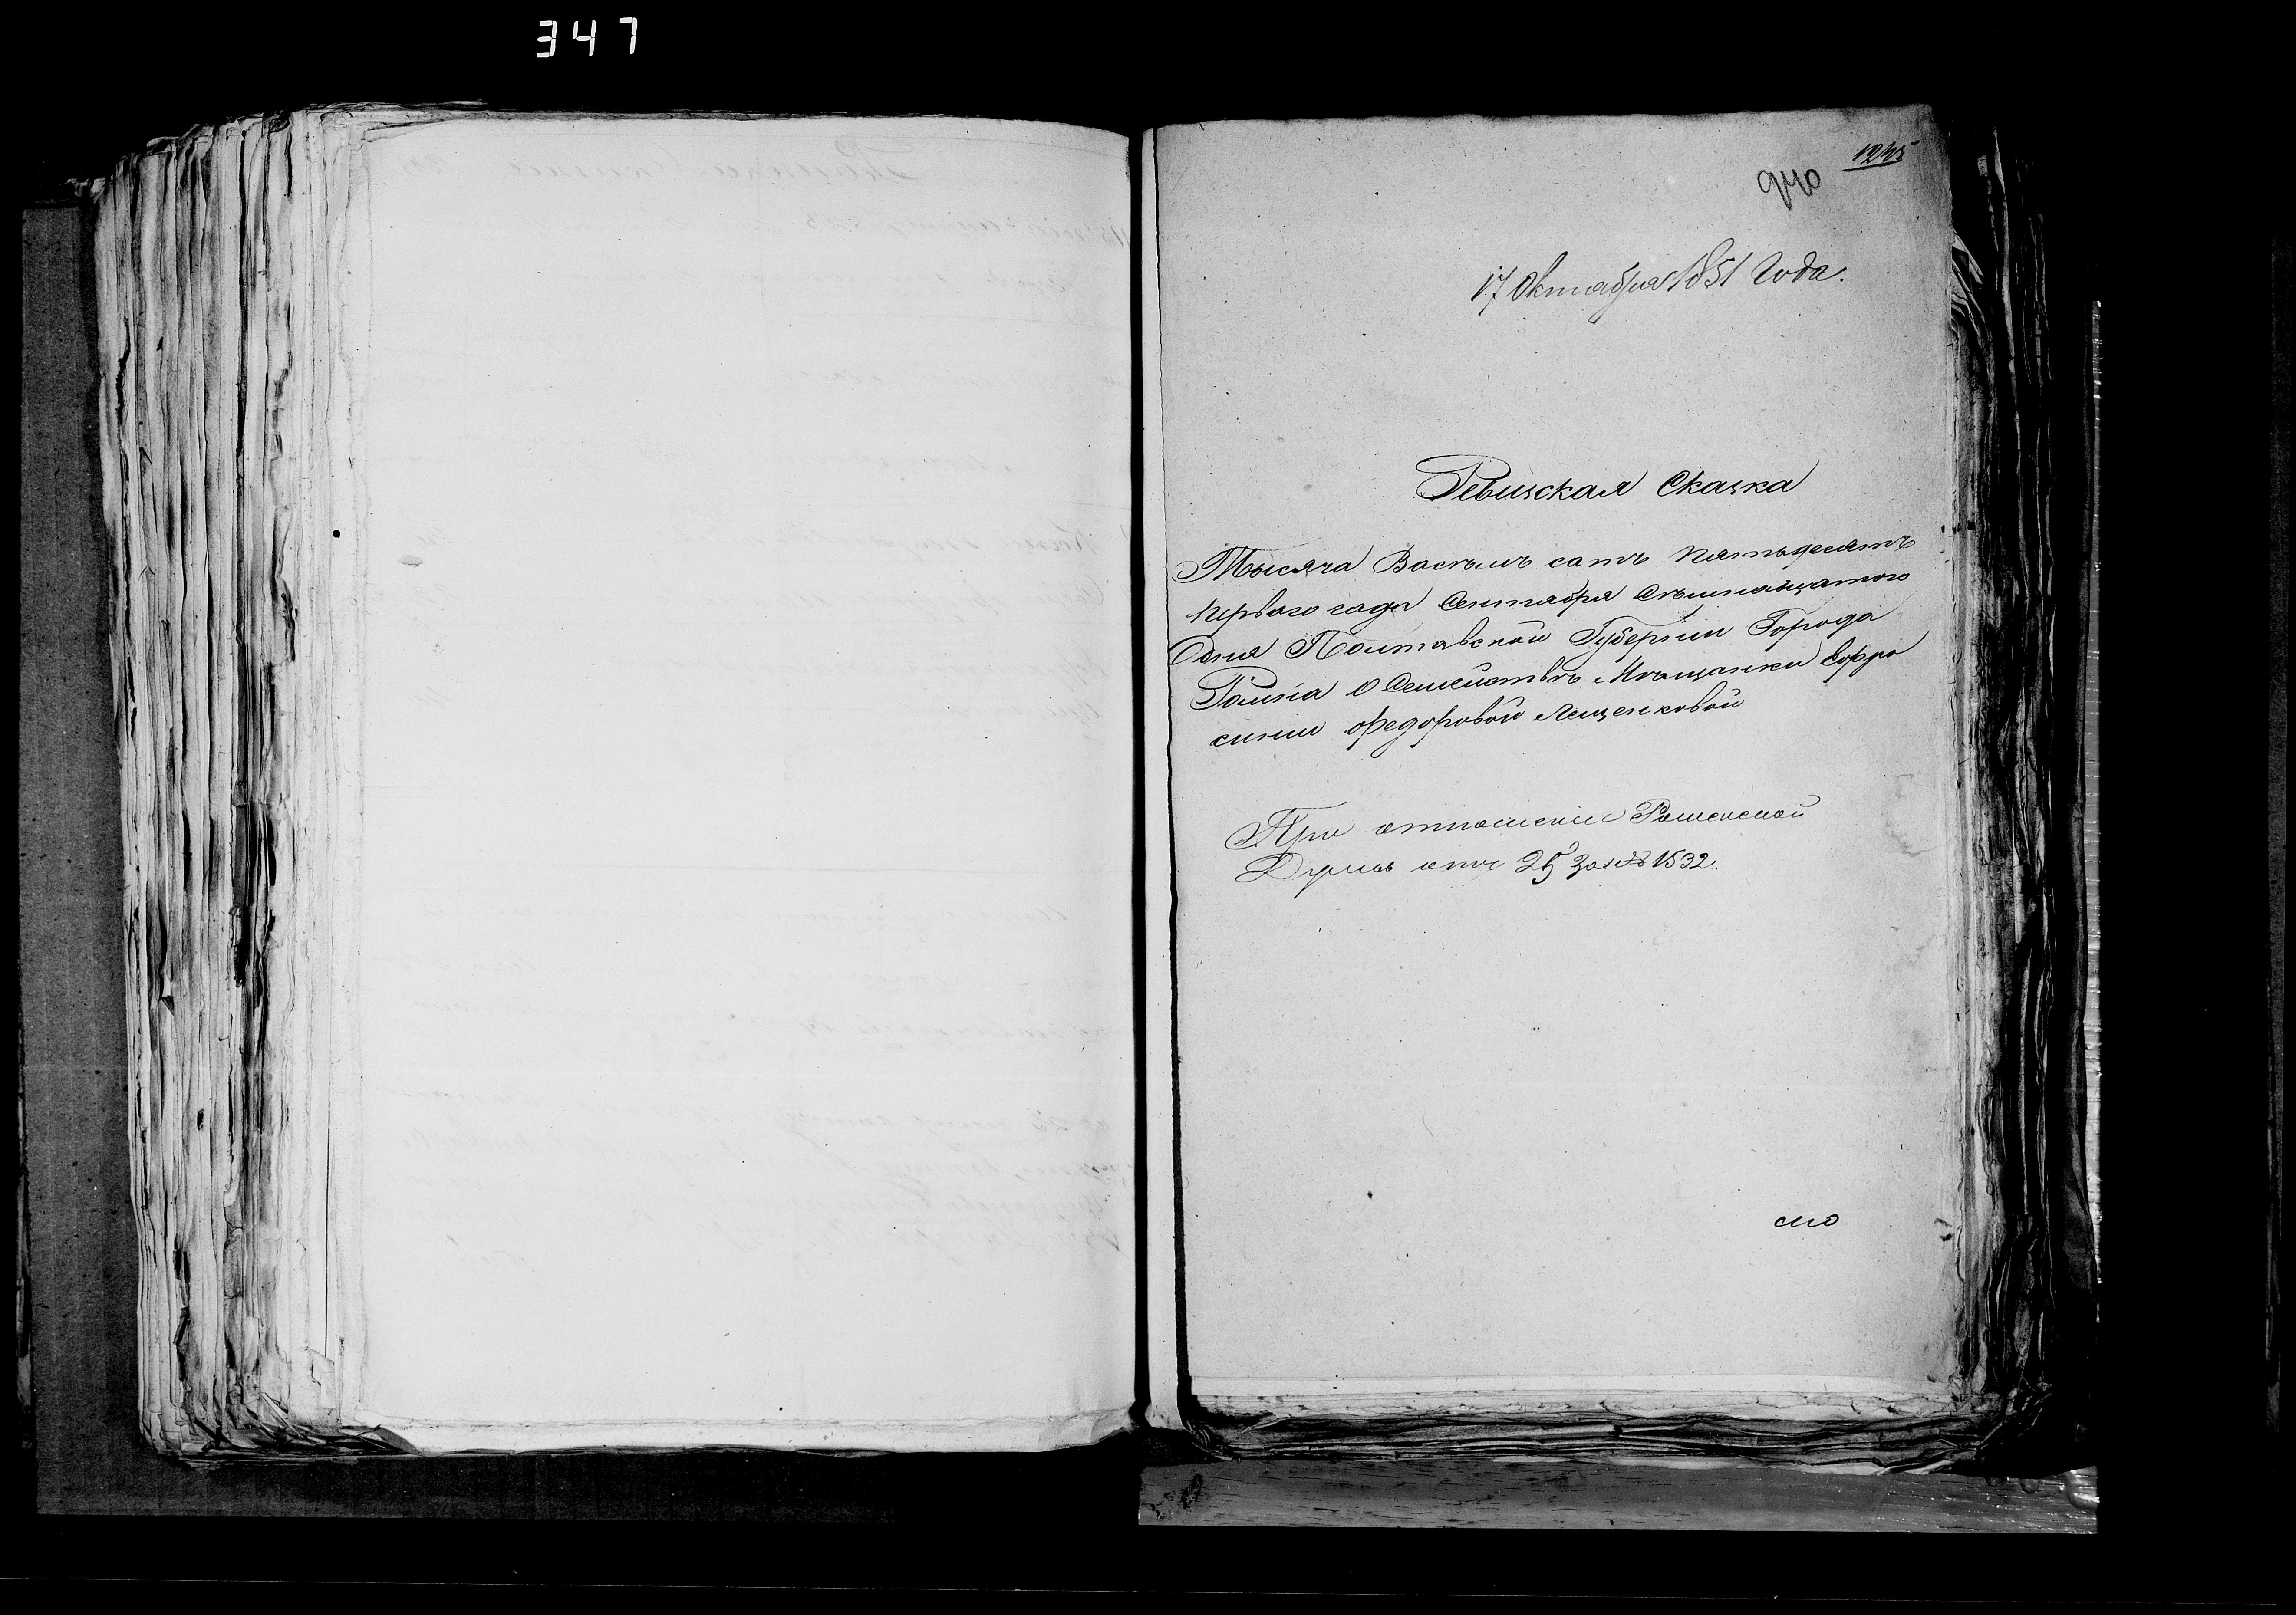 347
1245
940
17 Октября 1851 Года.
Ревизская Сказка
Тысяча Васѣмъ сатъ пятьдесятъ
первого года Сентября Сѣмнацатого
Дьня Полтавской Губернии Города
Ромна О Семействѣ Мѣщанки Ефро
синии Федоровой Лещенковой
При отношении Роменской
Думы отъ 25 за № 1532.